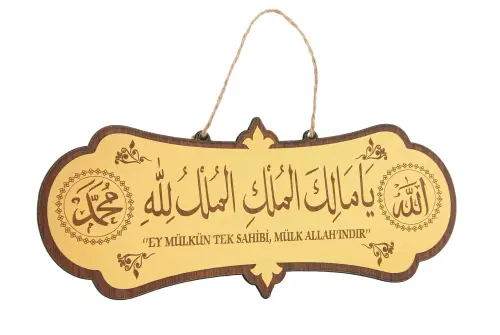 الله
يَا مَالِكَ الْمُلْكِ الْمُلْكُ لِلّٰهِ
محمد
"EY MÜLKÜN TEK SAHİBİ, MÜLK ALLAH'INDIR"